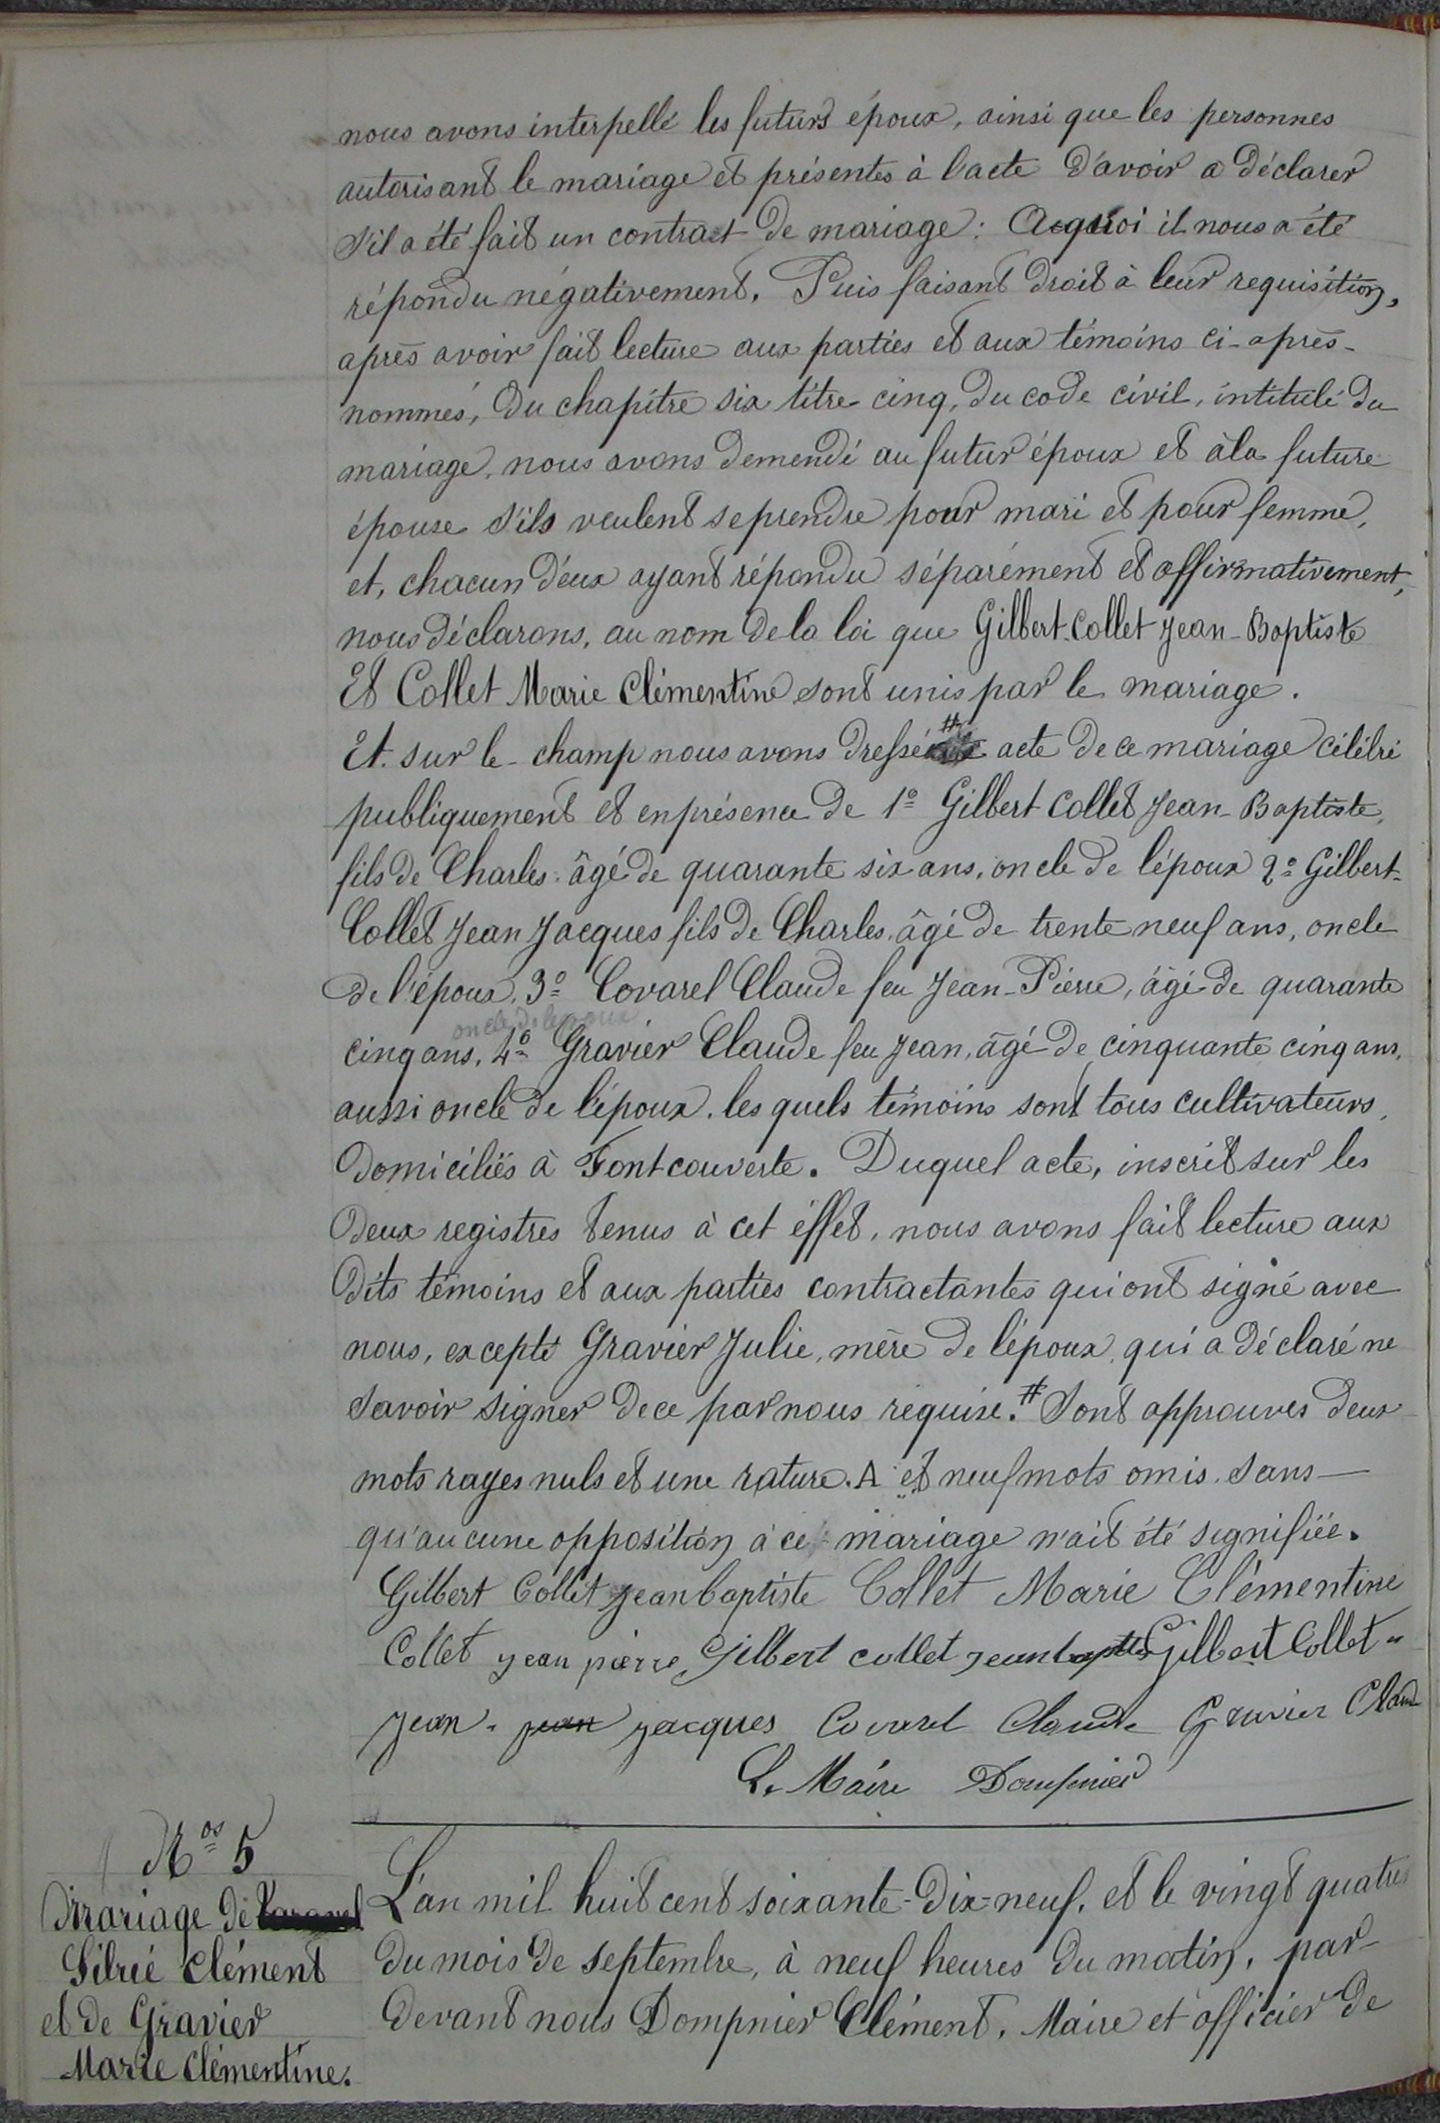 nous avons interpellé les futurs époux, ainsi que les personnes
autorisant le mariage et présentes à l'acte d'avoir a déclarer
s'il a été fait un contract de mariage : Aquoi il nous a été
répondu négativement. Puis faisant droit à leur requisition,
après avoir fait lecture aux parties et aux témoins ci-après-
nommés, du chapitre six titre cinq, du code civil, intitulé du
mariage, nous avons demendé au futur époux et à la future
épouse s'ils veulent se prendre pour mari et pour femme,
et, chacun d'eux ayant répondu séparément et affirmativement,
nous déclarons, au nom de la loi que Gilbert-Collet Jean-Baptiste
Et Collet Marie Clémentine sont unis par le mariage.
Et sur le-champ nous avons dressé # acte de ce mariage célébré
publiquement et en présence de 1° Gilbert Collet Jean-Baptiste,
fils de Charles âgé de quarante six ans, oncle de l'époux 2° Gilbert-
Collet Jean Jacques fils de Charles, âgé de trente neuf ans, oncle
de l'époux, 3° Covarel Claude feu Jean-Pierre, âgé de quarante
oncle de l'époux
cinq ans, 4° Gravier Claude feu Jean, âgé de cinquante cinq ans,
aussi oncle de l'époux, les quels témoins sont tous cultivateurs,
domiciliés à Fontcouverte. Duquel acte, inscrit sur les
deux registres tenus à cet éffet, nous avons fait lecture aux
dits témoins et aux parties contractantes qui ont signé avec
nous, excepté Gravier Julie, mère de l'époux, qui a déclaré ne
savoir signer de ce par nous requise. # Sont approuves deux
mots rayes nuls et une rature. A et neuf mots omis. sans
qu'aucune opposition à ce mariage n'ait été signifiée.
Gilbert Collet Jean baptiste Collet Marie Clémentine
Collet jean pierre Gilbert collet jean baptiste Gilbert Collet
Jean. jean jacques Covarel Claude Gravier Claude
Le Maire Dompnier
Nos 5
Mariage de
Sibué Clément
et de Gravier
Marie Clémentine.
L'an mil huit cent soixante-dix-neuf, et le vingt quatre
du mois de septembre, à neuf heures du matin, par-
devant nous Dompnier Clément, Maire et officier de